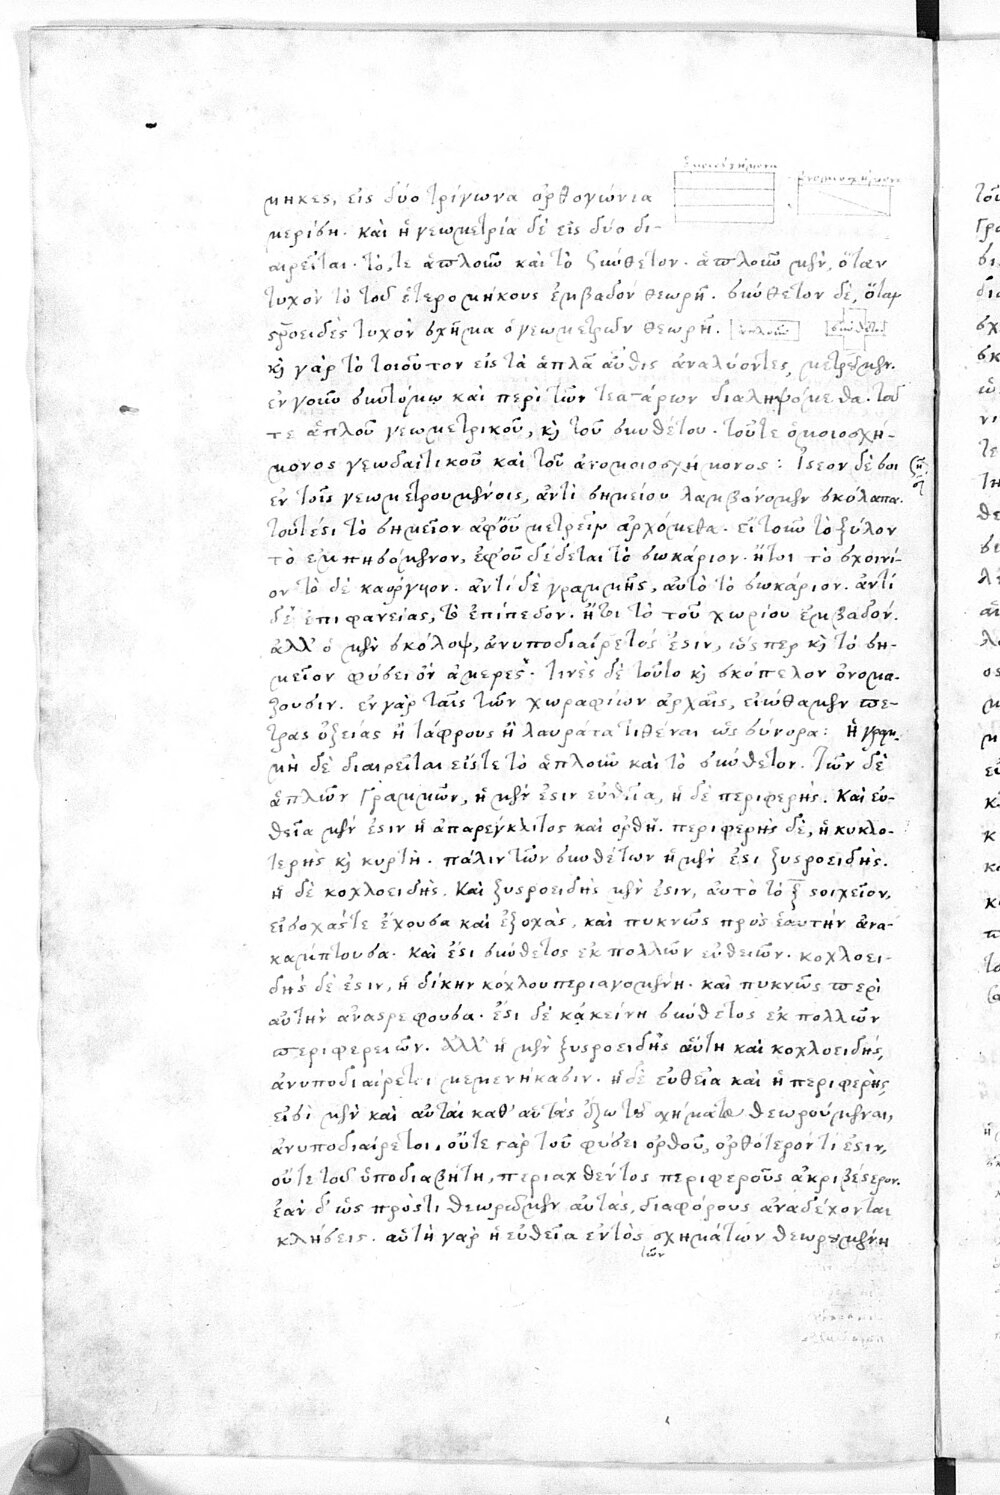 ὁμοιοσχήμονα
ἀνομοιοσχήμονα
μηκες, εἰς δύο τρίγωνα ὀρθογώνια
μερίση. καὶ ἡ γεωμετρία δὲ εἰς δύο δι-
αιρεῖται. τό, τε ἁπλοῦν καὶ τὸ σύνθετον. ἁπλοῦν μὲν, ὅταν
τυχὸν τὸ τοῦ ἑτερομήκους ἐμβαδὸν θεωρῆ. σύνθετον δὲ, ὅταν
στροειδὲς τυχὸν σχῆμα ὁ γεωμετρῶν θεωρῆ. ἁπλοῦν σύνθετον
κ γὰρ τὸ τοιοῦτον εἰς τὰ ἁπλᾶ αὖθις ἀναλύοντες, μετροῦμεν.
ἐν γοῦν συντόμω καὶ περὶ τῶν τεσσάρων διαληψόμεθα. τοῦ
τε ἁπλοῦ γεωμετρικοῦ, κ τοῦ συνθέτου. τοῦ τε ὁμοιοσχή-
μονος γεωδαιτικοῦ καὶ τοῦ ἀνομοιοσχήμονος: Ἰστέον δέ σοι
ἐν τοῖς γεωμετρουμένοις, ἀντὶ σημείου λαμβάνομεν σκόλοπα.
τουτέστι τὸ σημεῖον ἀφ' οὗ μετρεῖν ἀρχόμεθα. εἴτουν τὸ ξύλον
τὸ ἐμπησόμενον, ἐφ' οὗ δέδεται τὸ σωκάριον. ἤτοι τὸ σχοινί-
ον τὸ δὲ καόργυον. ἀντὶ δὲ γραμμῆς, αὐτὸ τὸ σωκάριον. ἀντὶ
δὲ ἐπιφανείας, τὸ ἐπίπεδον. ἤτοι τὸ τοῦ χωρίου ἐμβαδόν.
ἀλλ' ὁ μὲν σκόλοψ, ἀνυποδιαίρετός ἐστιν, ὥσπερ κ τὸ ση-
μεῖον φύσει ὂν ἀμερές. τινὲς δὲ τοῦτο κ σκόπελον ὀνομά-
ζουσιν. ἐν γὰρ ταῖς τῶν χωραφίων ἀρχαῖς, εἰώθαμεν πέ-
τρας ὀξείας ἢ τάφρους ἢ λαυράτα τιθέναι ὡς σύνορα: Ἡ γραμ-
μὴ δὲ διαιρεῖται εἴς τε τὸ ἁπλοῦν καὶ τὸ σύνθετον. Τῶν δὲ
ἁπλῶν γραμμῶν, ἡ μέν ἐστιν εὐθεῖα, ἡ δὲ περιφερής. Καὶ εὐ-
θεῖα μέν ἐστιν ἡ ἀπαρέγκλιτος καὶ ὀρθή. περιφερὴς δὲ, ἡ κυκλο-
τερὴς κ κυρτή. πάλιν τῶν συνθέτων ἡ μέν ἐστι ξυστροειδής.
ἡ δὲ κοχλοειδής. Καὶ ξυστροειδὴς μέν ἐστιν, αὐτὸ τὸ ξ στοιχεῖον,
εἰσοχάς τε ἔχουσα καὶ ἐξοχὰς, καὶ πυκνῶς πρὸς ἑαυτὴν ἀνα-
κάμπτουσα. καὶ ἔστι σύνθετος ἐκ πολλῶν εὐθειῶν. κοχλοει-
δής δέ ἐστιν, ἡ δίκην κόχλου περιαγομένη. καὶ πυκνῶς περὶ
αὐτὴν ἀναστρέφουσα. ἔστι δὲ κἀκείνη σύνθετος ἐκ πολλῶν
περιφερειῶν. Ἀλλ' ἡ μὲν ξυστροειδὴς αὕτη καὶ κοχλοειδής,
ἀνυποδιαίρετοι μεμενήκασιν. ἡ δὲ εὐθεῖα καὶ ἡ περιφερὴς,
εἰσὶ μὲν καὶ αὐταὶ καθ' αὑτὰς ἔξω τοῦ σχήματος θεωρούμεναι,
ἀνυποδιαίρετοι. οὔτε γὰρ τοῦ φύσει ὀρθοῦ, ὀρθότερόν τί ἐστιν,
οὔτε τοῦ ὑποδιαβήτη, περιαχθέντος περιφεροῦς ἀκριβέστερον.
ἐὰν δ' ὡς πρός τι θεωρῶμεν αὐτάς, διαφόρους ἀναδέχονται
κλήσεις. αὐτὴ γὰρ ἡ εὐθεῖα ἐντὸς σχημάτων θεωρουμένη
τῶν